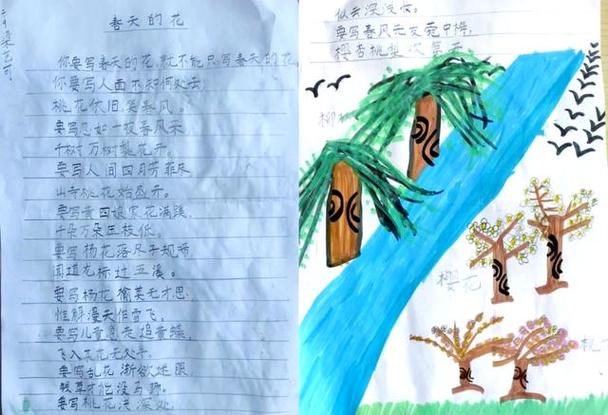 春天的花
你要写春天的花,就不能只写春天的花
你要写人面不知何处去
桃花依旧笑春风。
要写忽如一夜春风来
千树万树梨花开。
要写人间四月芳菲尽
山寺桃花始盛开。
要写黄四娘家花满蹊
千朵万朵压枝低。
要写杨花落尽子规啼
闻道龙标过五溪。
要写杨花榆荚无才思
惟解漫天作雪飞。
要写儿童急走追黄蝶,
飞入菜花无处寻。
要写乱花渐欲迷眼
浅草才能没马蹄。
要写桃花深处
似云深浅妆。
要写春风先发苑中梅
樱杏桃梨次第开
柳
樱花
桃